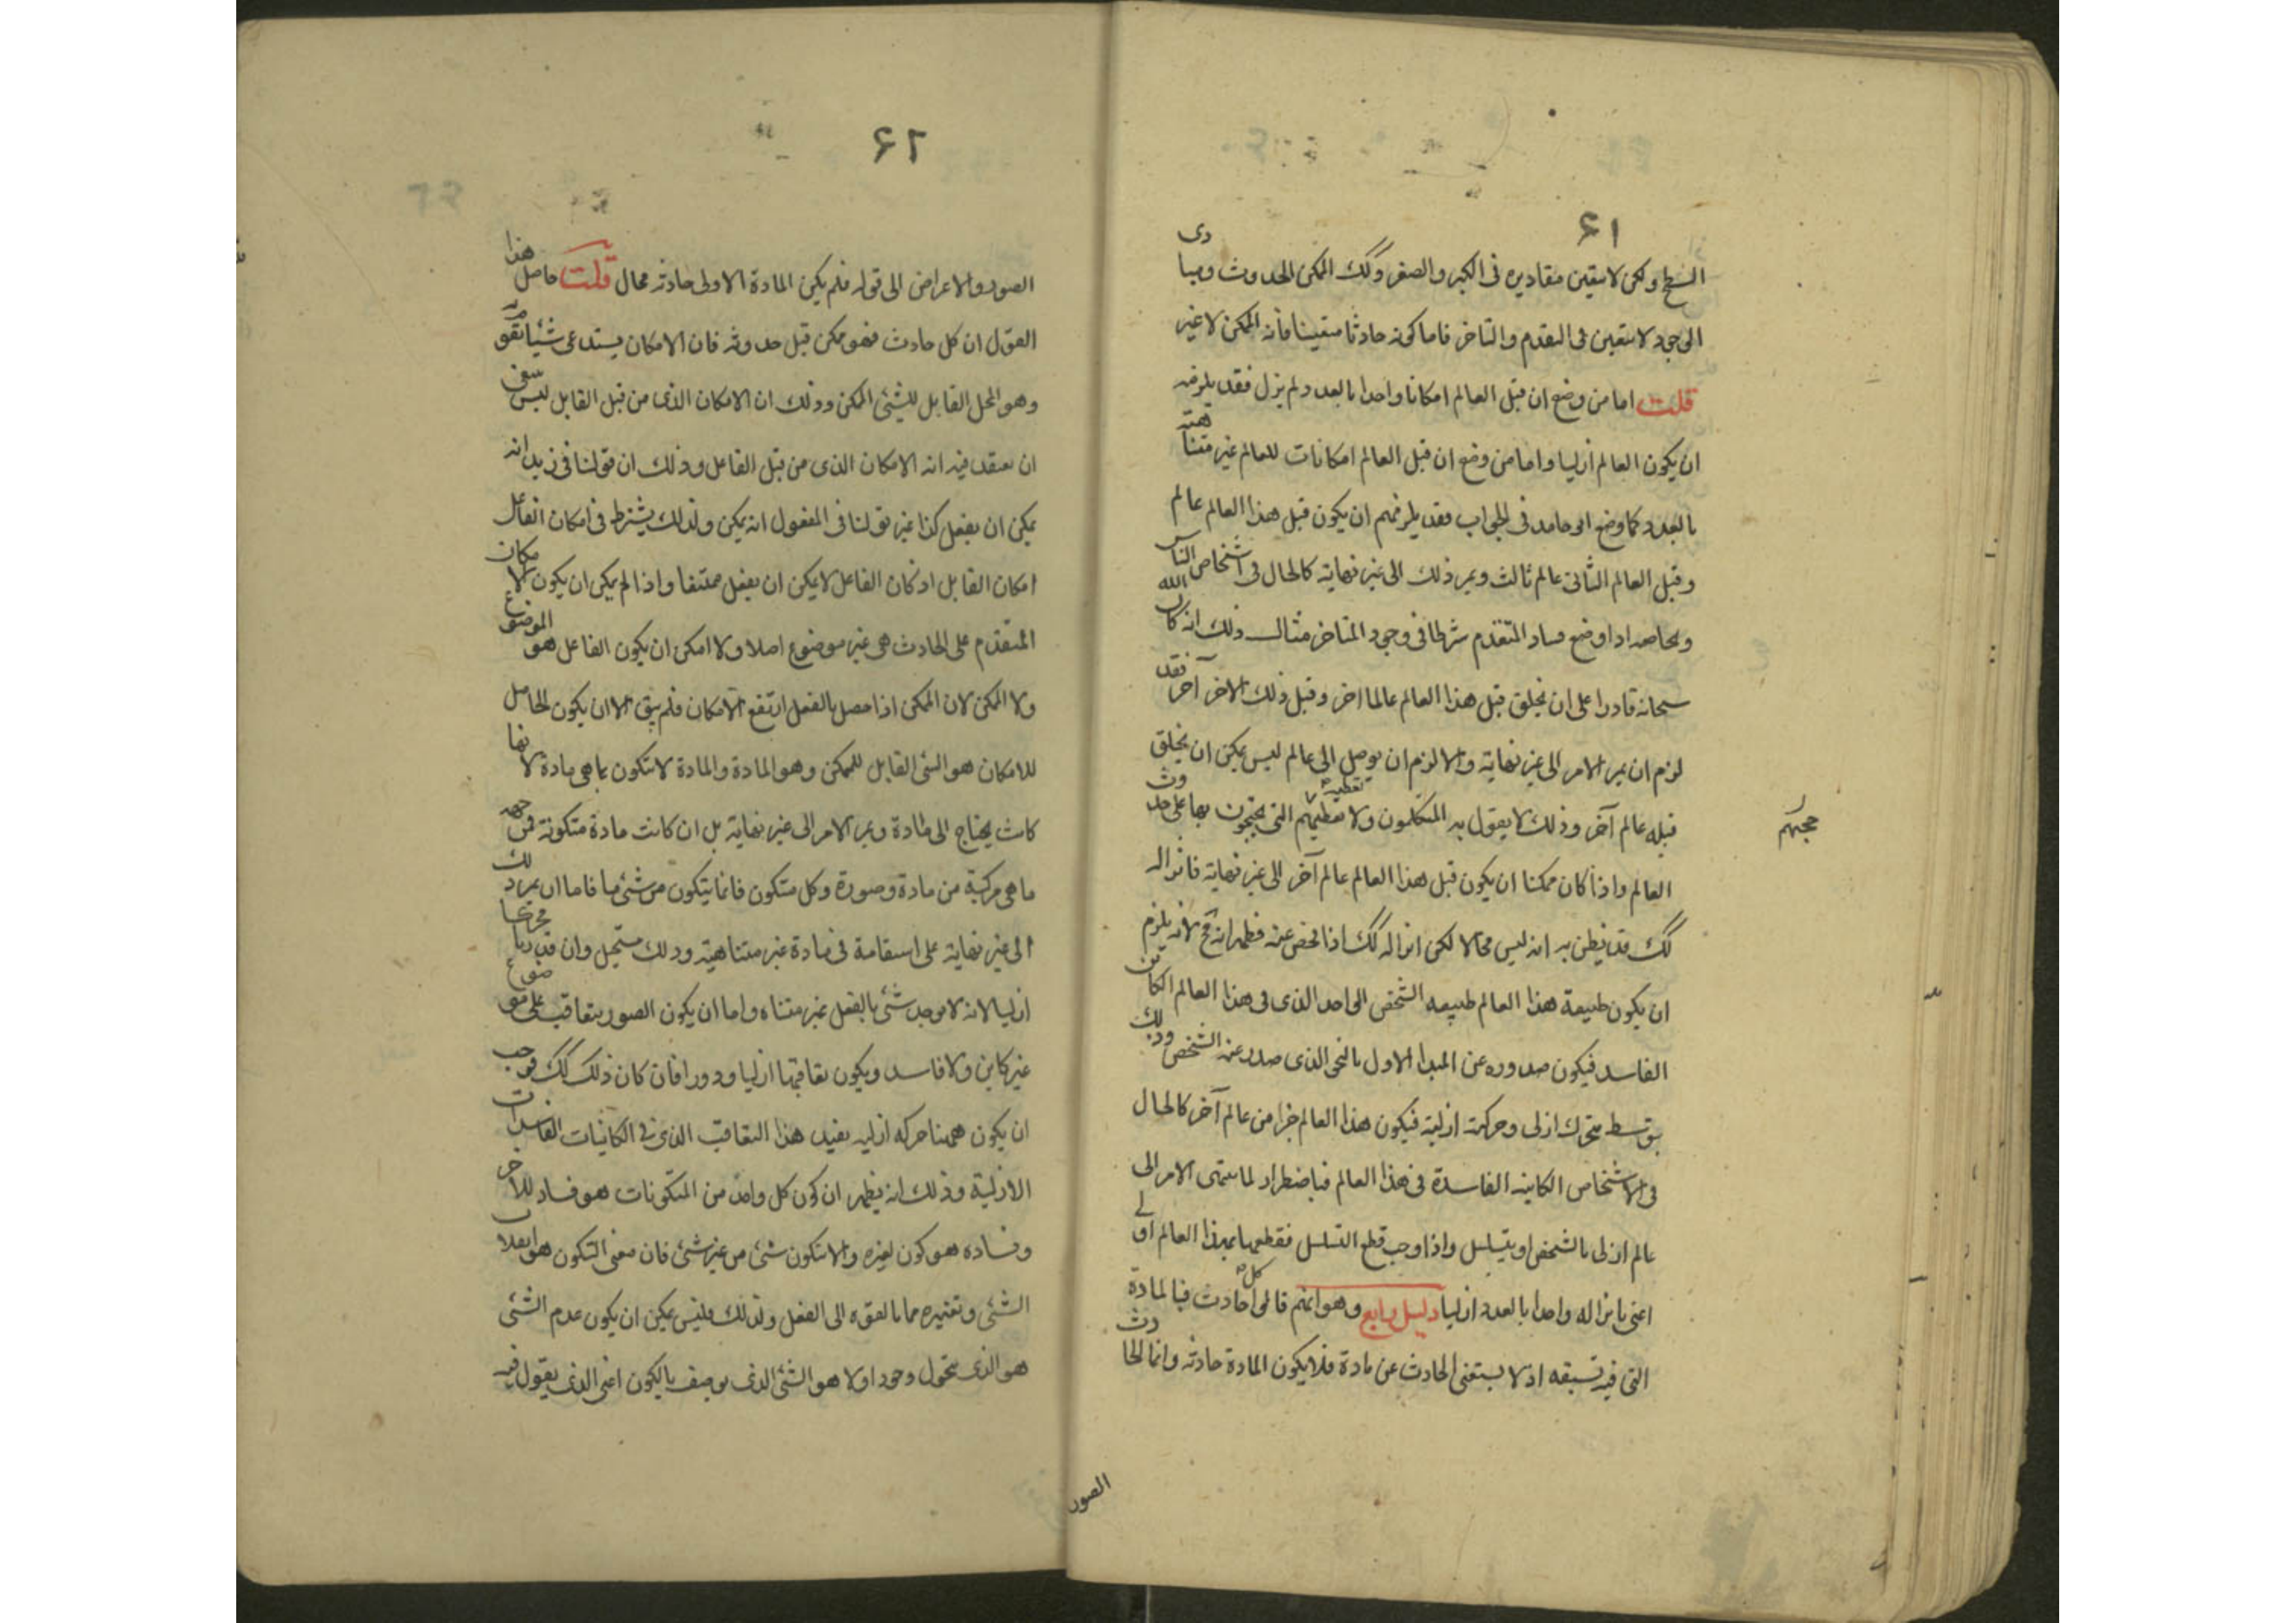 ۶۱
السطح ولكن لا يتعين مقاديره فى الكبر والصغر وكك الممكن الحدوث ومبادى
الوجود لا يتعين فى التقدم والتاخر فاما كونه حادثا متعينا فانه الممكن لا غير
قلت اما من وضع ان قبل العالم امكانا واحدا بالعدد لم يزل فقد يلزمه
ان يكون العالم ازليا واما من وضع ان قبل العالم امكانات للعالم غير متناهية
بالعدد كما وضع ابو حامد فى الجواب فقد يلزمهم ان يكون قبل هذا العالم عالم
وقبل العالم الثانى عالم ثالث ويمر ذلك الى غير نهاية كالحال فى اشخاص الناس
وبخاصه اذا وضع فساد المتقدم شرطا فى وجود المتاخر مثال ذلك انه كان الله
سبحانه قادرا على ان يخلق قبل هذا العالم عالما اخر وقبل ذلك الاخر آخر فقد
لزم ان يمر الامر الى غير نهاية والا لزم ان يوصل الى عالم ليس يمكن ان يخلق
قبله عالم آخر وذلك لا يقول به المتكلمون ولا تعطيهم التى يحتجون بها على حدوث
حجتهم
العالم واذا كان ممكنا ان يكون قبل هذا العالم عالم آخر الى غير نهاية فانزاله
كك قد يظن به انه ليس محالا لكن انزاله كك اذا فحص عنه فظهر انه مح لانه يلزم
ان يكون طبيعة هذا العالم طبيعه الشخص الواحد الذى فى هذا العالم الكائن
الفاسد فيكون صدوره عن المبدا الاول بالنحو الذى صدر عنه الشخص وذلك
بتوسط متحرك ازلى وحركة ازلية فيكون هذا العالم جزا من عالم آخر كالحال
فى الاشخاص الكاينه الفاسدة فى هذا العالم فباضطرار لما ينتهى الامر الى
عالم ازلى بالشخص او يتسلسل واذا وجب قطع التسلسل فقطعها بهذا العالم اولى
اعنى بانزاله واحدا بالعدد ازليا دليل رابع وهو انهم قالوا كل حادث فبالمادة
التى فيه تسبقه اذ لا يستغنى الحادث عن مادة فلا يكون المادة حادثه وانما الحادث
الصور
۶۲
الصور والاعراض الى قوله فلم يكن المادة الاولى حادثه بحال قلت حاصل هذا
القول ان كل حادث فهو ممكن قبل حدوثه فان الامكان يستدعى شيئا يقوم به
وهو المحل القابل للشئ الممكن وذلك ان الامكان الذى من قبل القابل ليس ينبغى
ان يعتقد فيه انه الامكان الذى من قبل الفاعل وذلك ان قولنا فى زيد انه
يمكن ان يفعل كذا غير قولنا فى المفعول انه يمكن ولذلك يشترط فى امكان الفاعل
امكان القابل اذ كان الفاعل لا يمكن ان يفعل ممتنعا واذا لم يكن ان يكون الامكان
المتقدم على الحادث هى غير موضوع اصلا ولا امكن ان يكون الفاعل هو الموضوع
ولا الممكن لان الممكن اذا حصل بالفعل ارتفع الامكان فلم يبق الا ان يكون الحامل
للامكان هو الشئ القابل للممكن وهو المادة والمادة لا يتكون بما هى مادة لانها
كانت يحتاج الى مادة ويمر الامر الى غير نهاية بل ان كانت مادة متكونة فمن جهه
ما هى مركبة من مادة وصورة وكل متكون فانما يتكون من شئ ما فاما ان يمر ذلك
الى غير نهاية على استقامة فى مادة غير متناهية وذلك مستحيل وان قدرنا محركا
ازليا لانه لا يوجد شئ بالفعل غير متناه واما ان يكون الصور يتعاقب على موضوع
غير كاين ولا فاسد ويكون تعاقبها ازليا ودورا فان كان ذلك كك فوجب
ان يكون ههنا حركه ازليه يفيد هذا التعاقب الذى فى الكائنات الفاسدات
الازلية وذلك انه يظهر ان كون كل واحد من المتكونات هو فساد للآخر
وفساده هو كون لغيره والا يتكون شئ من غير شئ فان معنى التكون هو انقلاب
الشئ وتغيره مما بالقوه الى الفعل ولذلك فليس يمكن ان يكون عدم الشئ
هو الذى يتحول وجودا ولا هو الشئ الذى يوصف بالكون اعنى الذى يقول فيه